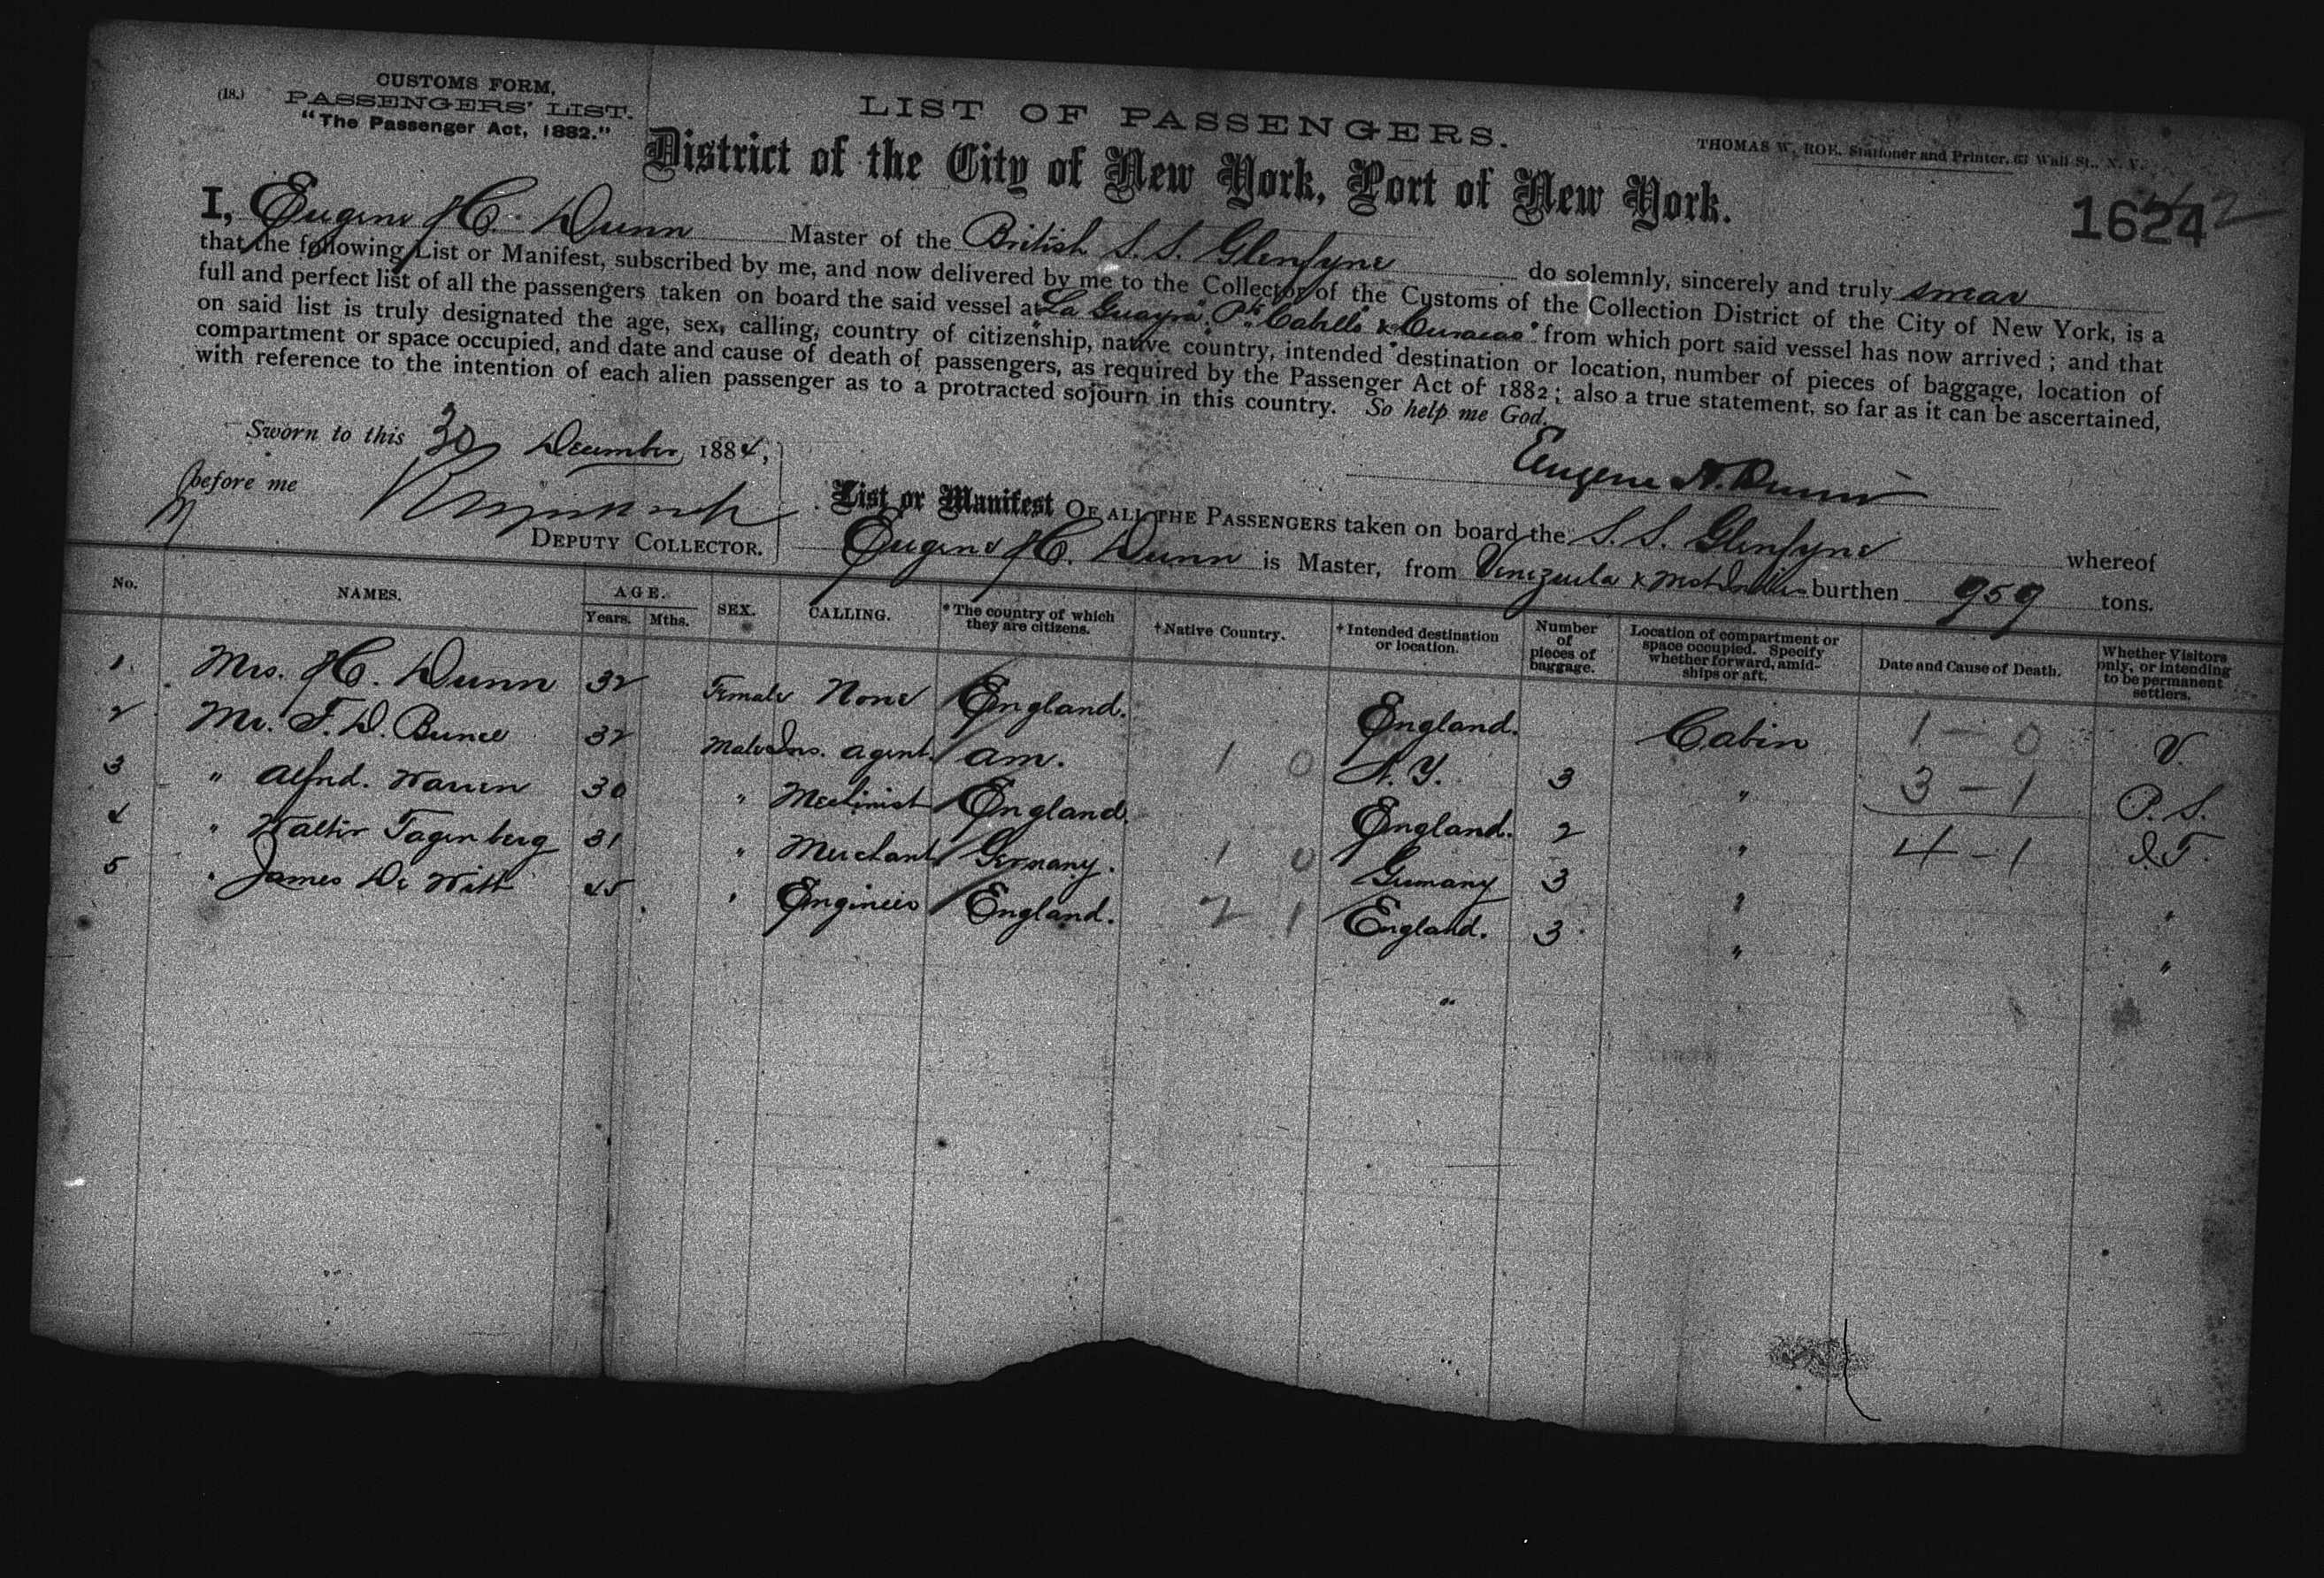 (18.)
CUSTOMS FORM,
PASSENGERS' LIST.
"The Passenger Act, 1882."
LIST OF PASSENGERS.
THOMAS W. ROE, Stationer and Printer, 67 Wall St., N. Y.
District of the City of New York, Port of New York.
1624
I, Eugene H. Dunn Master of the British S.S. Glenfyne do solemnly, sincerely and truly swear
that the following List or Manifest, subscribed by me, and now delivered by me to the Collector of the Customs of the Collection District of the City of New York, is a
full and perfect list of all the passengers taken on board the said vessel at "La Guayra", "Pto Cabello" & "Curacao" from which port said vessel has now arrived; and that
on said list is truly designated the age, sex, calling, country of citizenship, native country, intended destination or location, number of pieces of baggage, location of
compartment or space occupied, and date and cause of death of passengers, as required by the Passenger Act of 1882; also a true statement, so far as it can be ascertained,
with reference to the intention of each alien passenger as to a protracted sojourn in this country. So help me God.
Sworn to this 30 December, 1884,
Eugene H. Dunn
before me
DEPUTY COLLECTOR.
List or Manifest OF ALL THE PASSENGERS taken on board the S.S. Glenfyne whereof
Eugene H. Dunn is Master, from Venezuela & West Indies burthen 959 tons.
No. NAMES. AGE. Years. Mths. SEX. CALLING. *The country of which they are citizens. †Native Country. ‡Intended destination or location. Number of pieces of baggage. Location of compartment or space occupied. Specify whether forward, amidships or aft. Date and Cause of Death. Whether Visitors only, or intending to be permanent settlers.
1 Mrs. H. Dunn 32 Female None England. England. Cabin 1 - 0 V.
2 Mr. F. D. Bunce 32 Male Ins. agent. am. 1 0 N. Y. 3 " 3 - 1 P. S.
3 " Alfrd. Warren 30 " Mechinist England. England. 2 " 4 - 1 I. T.
4 " Walter Tagenberg 31 " Merchant Germany. 1 0 Germany 3 " "
5 " James De Witt 45 " Engineer England. 2 1 England. 3 " "
"